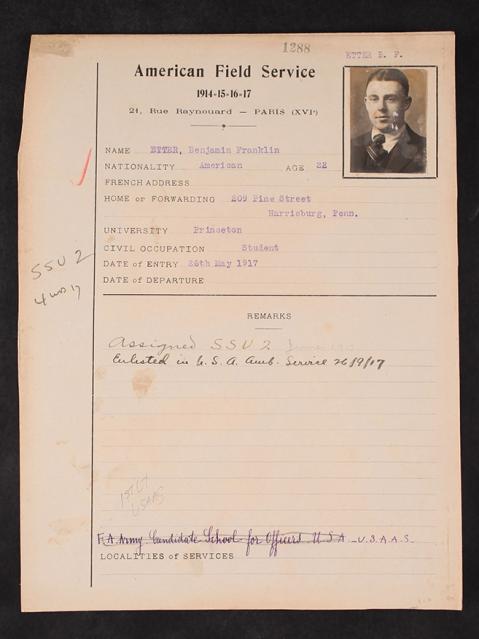 1288
ETTER B. F.
American Field Service
1914-15-16-17
21, Rue Raynouard — PARIS (XVIe)
NAME ETTER, Benjamin Franklin
NATIONALITY American AGE 22
FRENCH ADDRESS
HOME or FORWARDING 209 Pine Street
Harrisburg, Penn.
UNIVERSITY Princeton
CIVIL OCCUPATION Student
DATE of ENTRY 26th May 1917
DATE of DEPARTURE
SSU 2
REMARKS
Assigned SSU 2 June
Enlisted in U.S.A. Amb. Service 26/9/17
1st LT
USAAS
F.A. Army Candidate School for Officers U.S.A. U.S.A.A.S.
LOCALITIES of SERVICES